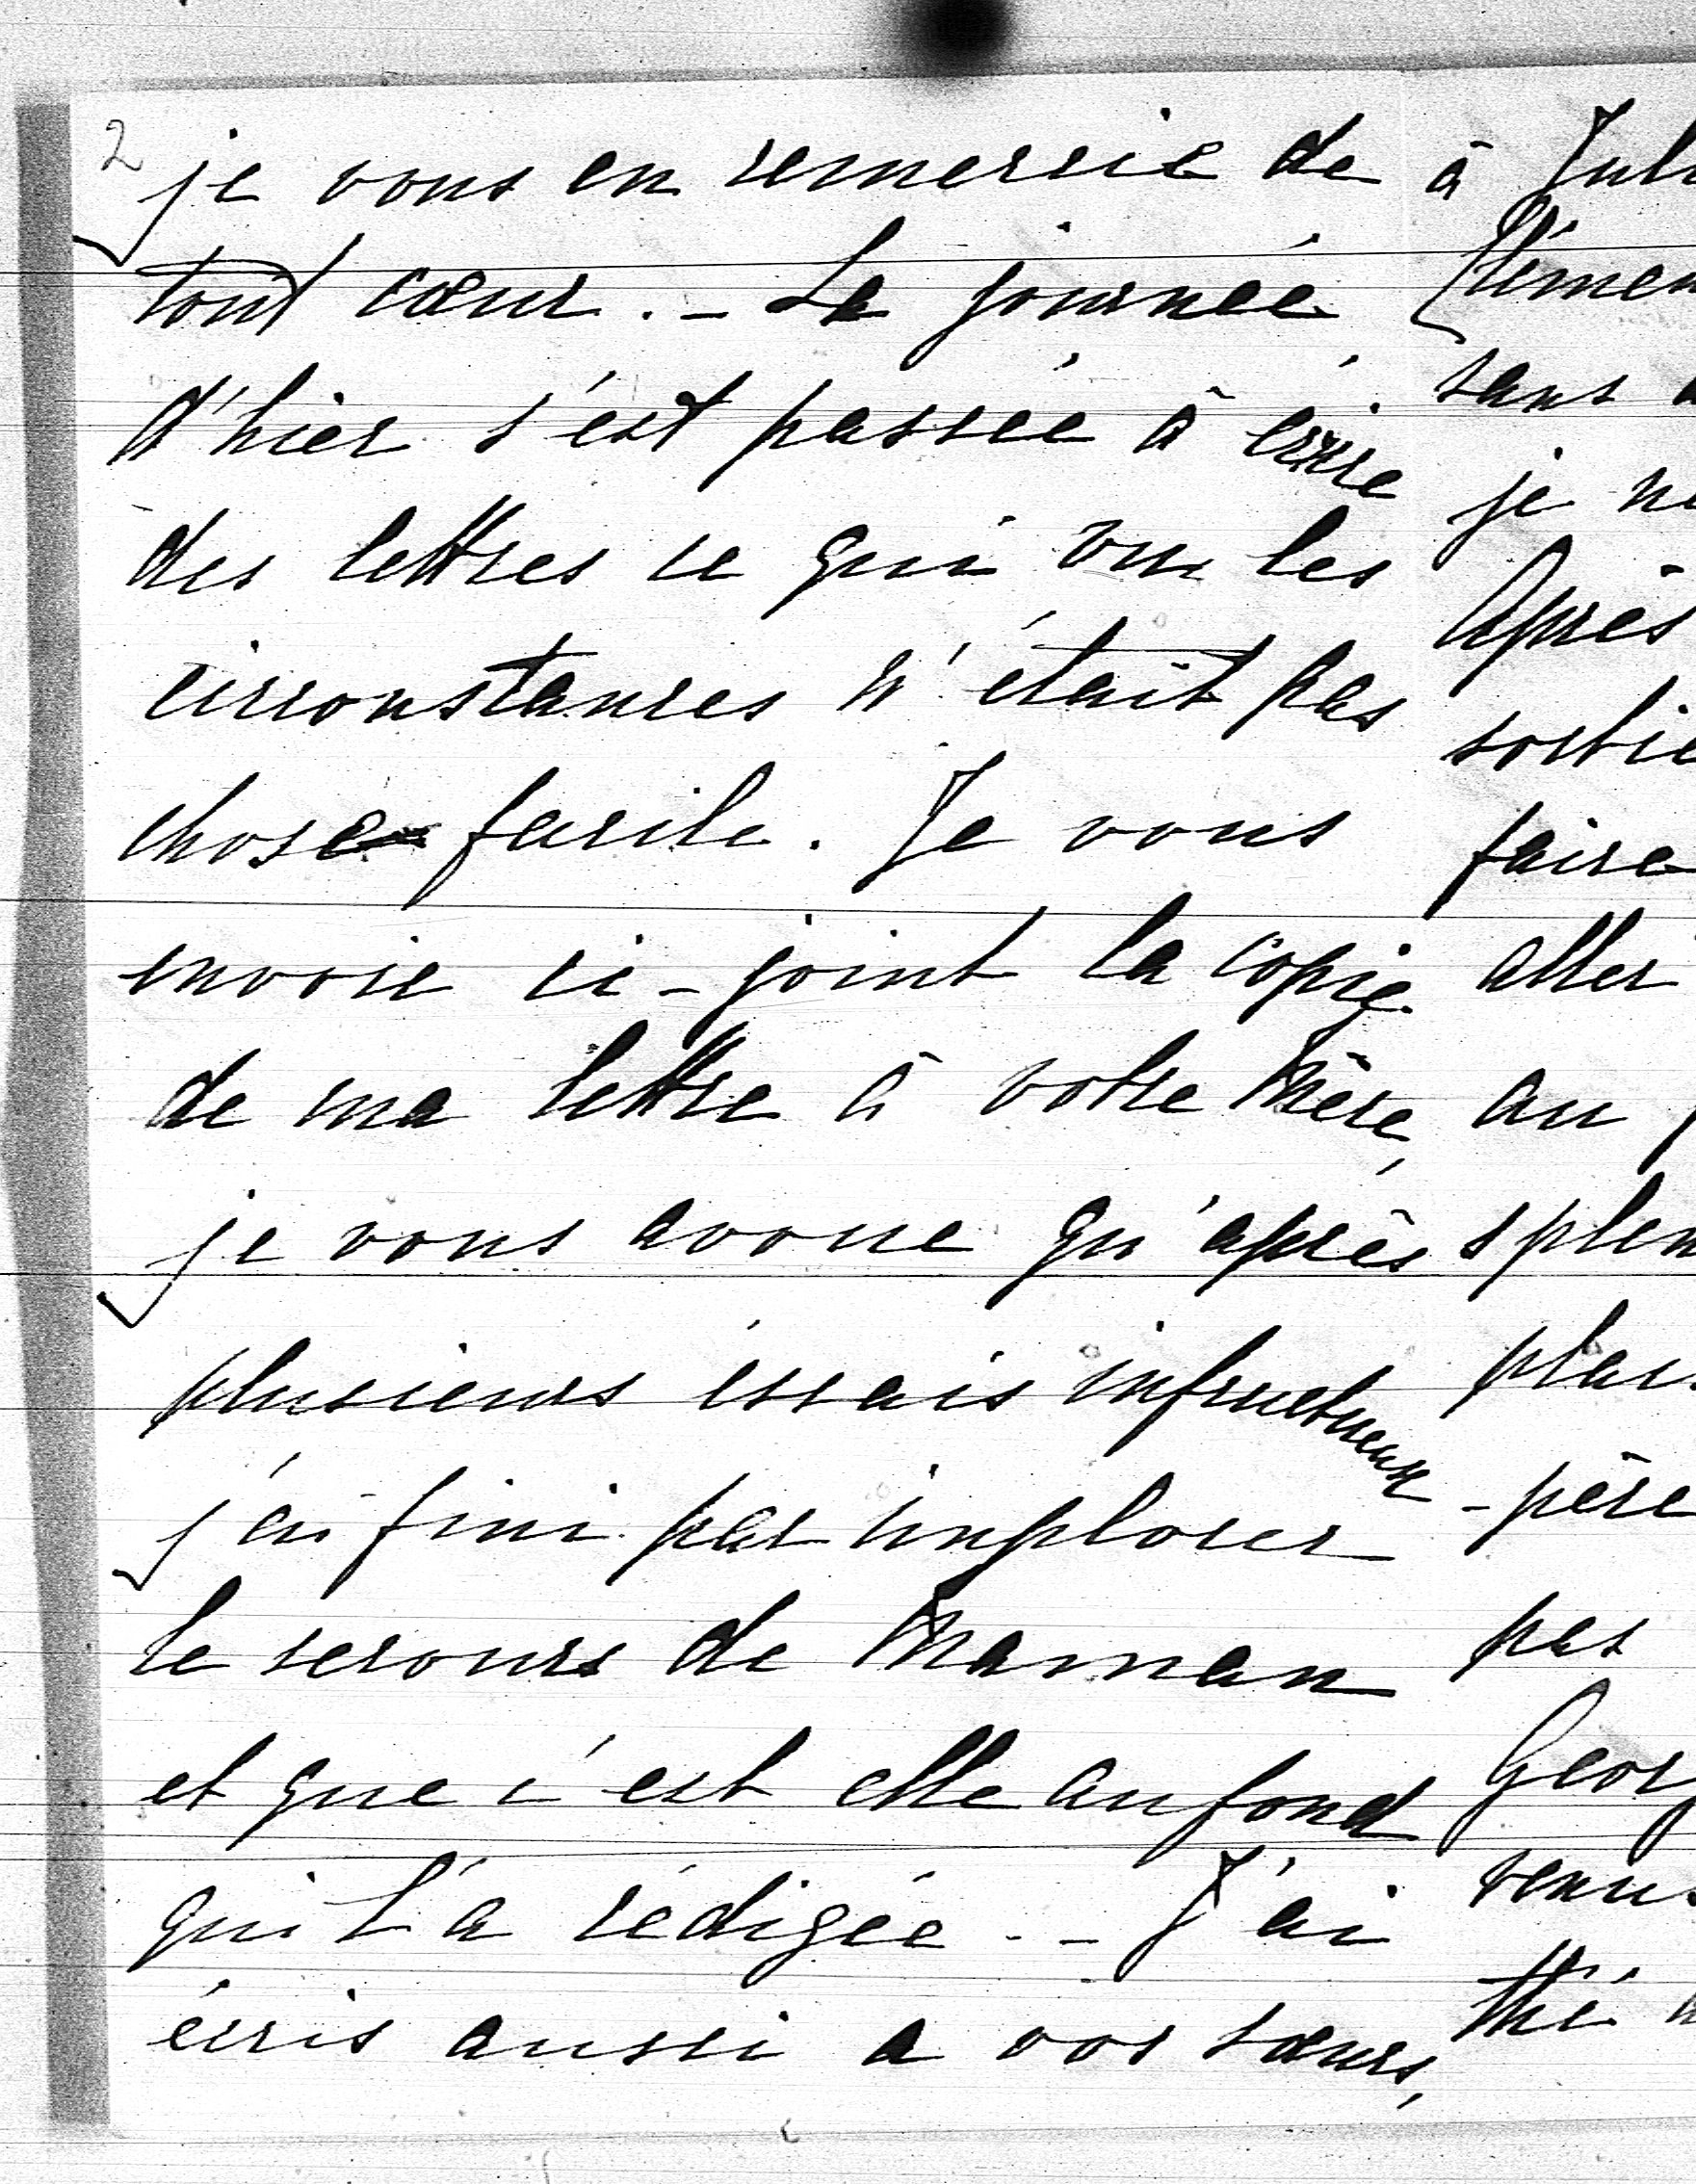 2
je vous en remercie de
tout cœur. - La journée
d'hier s'est passée à écrire
des lettres ce qui vu les
circonstances n'était pas
chose facile. Je vous
envoie ci-joint la copie
de ma lettre à votre Mère,
je vous avoue qu'après
plusieurs essais infructueux
j'ai fini par implorer
le secours de Maman
et que c'est elle au fond
qui l'a rédigée. - J'ai
écris aussi a vos sœurs,
à
sans
je
Après
sortie
faire
aller
au
-père
pas
thé